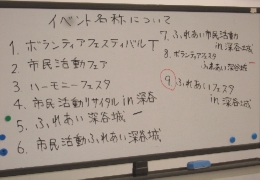 イベント名称について
1. ボランティアフェスティバル T
2. 市民活動フェア
3. ハーモニーフェスタ
4. 市民活動リサイタル in 深谷
5. ふれあい深谷城 一
6. 市民活動ふれあい深谷城
7. ふれあい市民活動
in 深谷城
8. ボランティアフェスタ
ふれあい深谷城 一
9. ふれあいフェスタ
in 深谷城